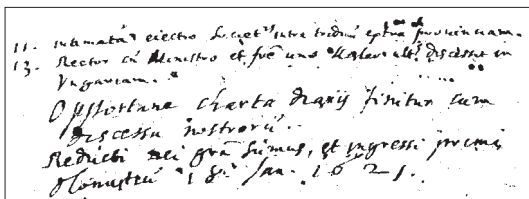 11. intimata eiectio Societis intra triduum extra provinciam.
13. Rector cū Ministro et fre uno discessit in
Vngariam.
Opportune charta diarij finitur cum
discessu nostrorū.
Reducti Dei grā sumus, et ingressi primi
Olomutiū 18 Jan. 1621.